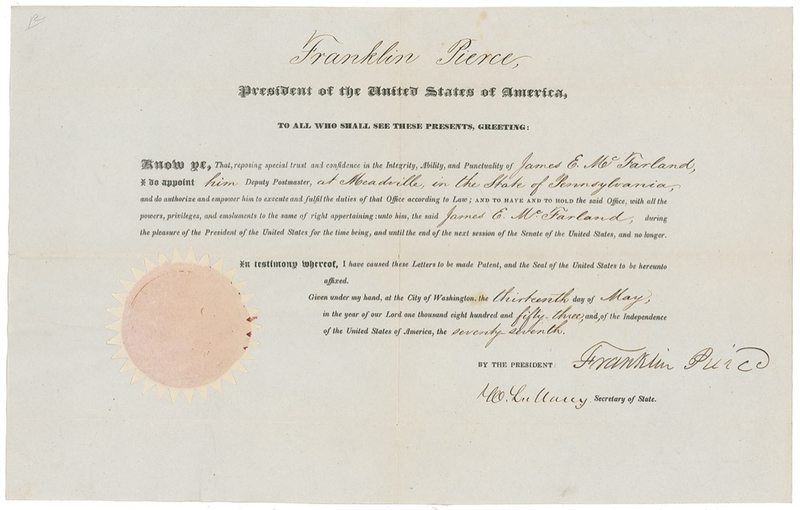 Franklin Pierce,
President of the United States of America,
TO ALL WHO SHALL SEE THESE PRESENTS, GREETING:
Know ye, That, reposing special trust and confidence in the Integrity, Ability, and Punctuality of James E. McFarland,
I do appoint him Deputy Postmaster, at Meadville, in the State of Pennsylvania,
and do authorize and empower him to execute and fulfil the duties of that Office according to Law; AND TO HAVE AND TO HOLD the said Office, with all the
powers, privileges, and emoluments to the same of right appertaining unto him, the said James E. McFarland, during
the pleasure of the President of the United States for the time being, and until the end of the next session of the Senate of the United States, and no longer.
In testimony whereof, I have caused these Letters to be made Patent, and the Seal of the United States to be hereunto
affixed.
Given under my hand, at the City of Washington, the thirteenth day of May,
in the year of our Lord one thousand eight hundred and fifty-three, and of the Independence
of the United States of America, the seventy-seventh.
BY THE PRESIDENT: Franklin Pierce
W. L. Marcy Secretary of State.